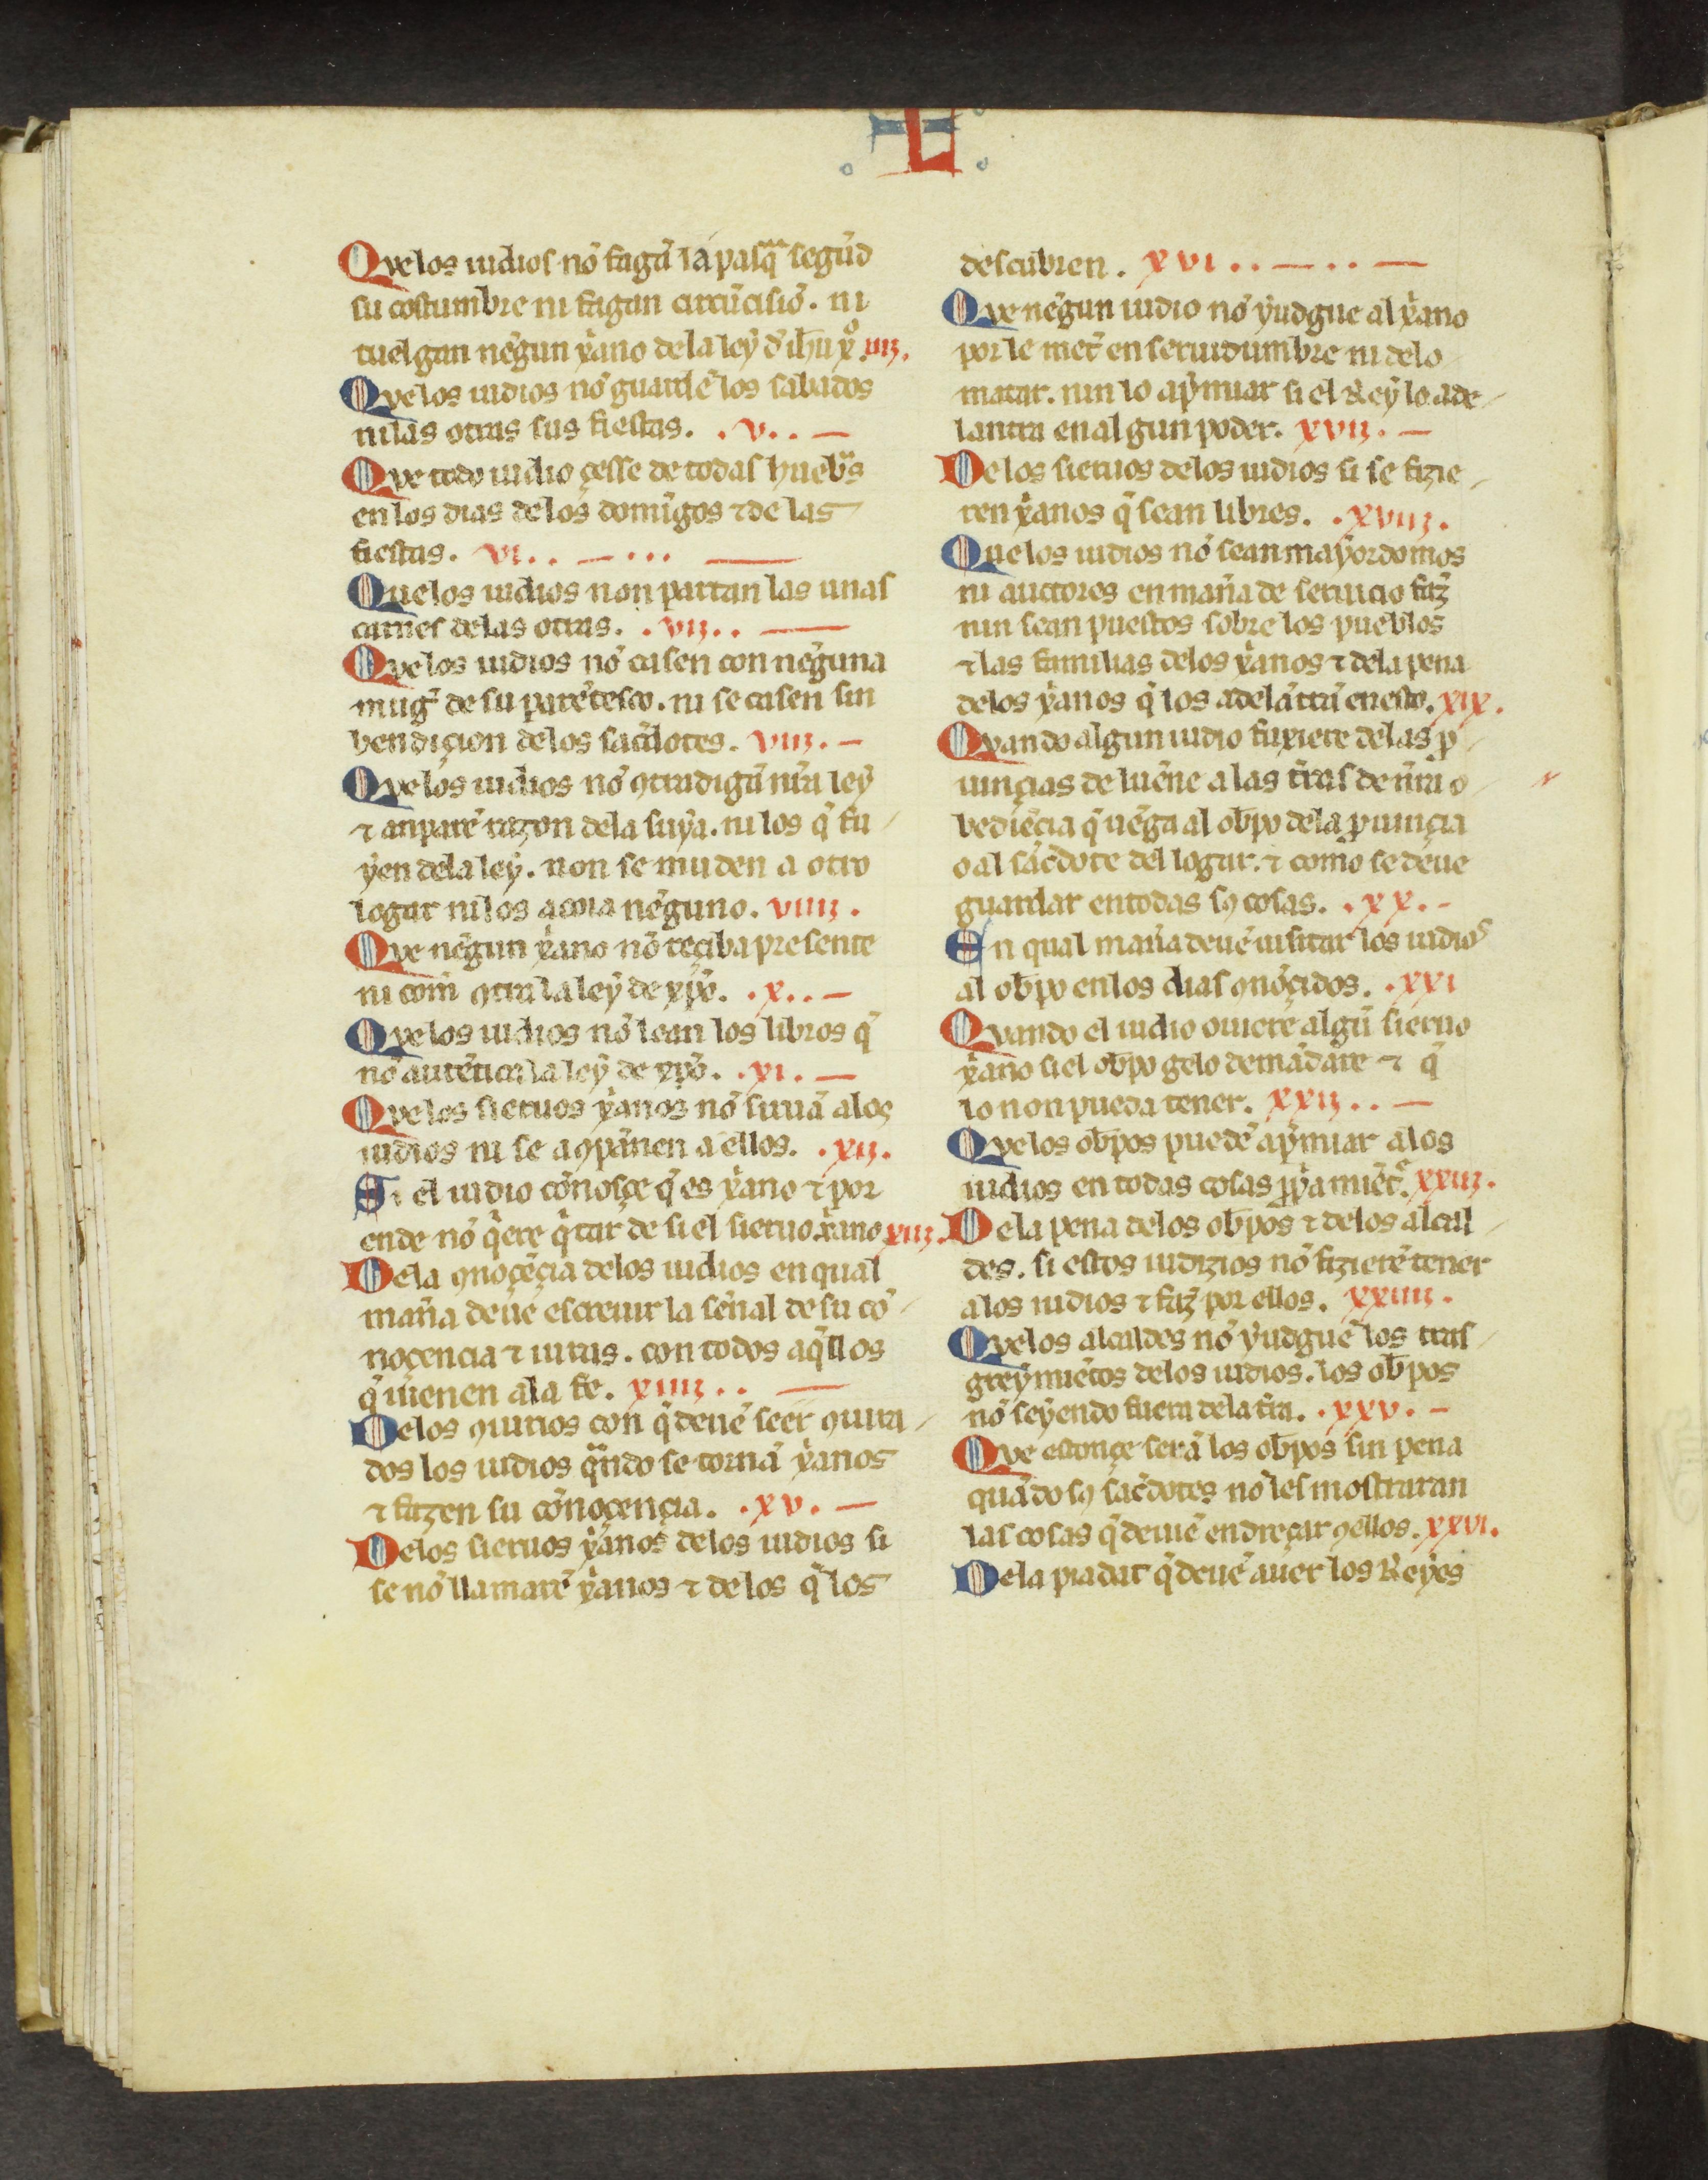 L
Que los iudios nõ fagã la pasqᷓ segũd
su costumbre ni fagan circũcisiõ. ni
tuelgan nẽgun xp̃iano de la ley d̃ ih̃u xº. iiij.
Que los iudios nõ guardẽ los sabados
ni las otras sus fiestas. .v..—
Que todo iudio çesse de todas huebᷓs
en los dias de los domĩgos ⁊ de las
fiestas. vi..—...—
Que los iudios non partan las unas
carñes de las otras. .vij..—
Que los iudios nõ casen con nẽguna
mug̃ de su parẽtesco. ni se casen sin
bendiçion de los saçdotes. viij.—
Que los iudios nõ ꝯtradigã nr̃a ley
⁊ anparẽ razon de la suya. ni los q̃ fu
yen de la ley. non se muden a otro
logar ni los acoia nẽguno. viiij.
Que nẽgun xᷓano nõ reçiba presente
ni com̃ ꝯtra la ley de xp̃o. .x..—
Que los iudios nõ lean los libros q̃
nõ autẽtica la ley de xp̃o. .xi.—
Que los sieruos xᷓanos nõ siruã a los
iudios ni se aꝯpãnen a ellos. .xij.
Si el iudio cõnosçe q̃ es xᷓano ⁊ por
ende nõ q̃ere q̃tar de si el sieruo xᷓano xiij.
De la ꝯnoçẽçia de los iudios en qual
mañia deuẽ escreuir la sẽnal de su cõ
noçencia ⁊ iuras. con todos aq̃llos
q̃ uienen a la fe. xiiij..—
De los ꝯiurios con q̃ deuẽ seer ꝯiura
dos los iudios qᷓndo se tornã xᷓanos
⁊ fazen su cõnoçençia. .xv.—
De los sieruos xᷓanos de los iudios si
se nõ llamarẽ xᷓanos ⁊ de los q̃ los
descubren. xvi..—..—
Que nẽgun iudio nõ yudgue al xᷓano
por le met̃ en seruidumbre ni de lo
matar. nin lo ap̃miar si el Rey lo ade
lantra en algun poder. xvij.—
De los sieruos de los iudios si se fizie
ren xᷓanos q̃ sean libres. .xviij.
Que los iudios nõ sean mayordomos
ni auctores en mañia de seruicio faz̃
nin sean puestos sobre los pueblos
⁊ las familias de los xᷓanos ⁊ de la pena
de los xᷓanos q̃ los adelãtrã en esto. xix.
Quando algun iudio fuxiere de las p̃
uinçias de luẽne a las tr̃as de nr̃a o
bediẽcia q̃ uẽga al ob̃po de la p̃uinçia
o al saçdote del logar. ⁊ como se deue
guardar en todas sꝯ cosas. .xx.-
En qual mañia deuẽ uisitar los iudios
al ob̃po en los dias ꝯnõçidos. .xxi
Quando el iudio ouiere algũ sieruo
xᷓano si el ob̃po gelo demãdare ⁊ q̃
lo non pueda tener. xxij..—
Que los ob̃pos puedẽ ap̃miar a los
iudios en todas cosas p̃p̃amiẽt̃. xxiij.
De la pena de los ob̃pos ⁊ de los alcall
des. si estos iudizios nõ fizierẽ tener
a los iudios ⁊ faz̃ por ellos. xxiiij.
Que los alcaldes nõ yudguẽ los tras
greymiẽtos de los iudios. los ob̃pos
nõ seyendo fuera de la tr̃a. .xxv.-
Que estonçe serã los ob̃pos sin pena
quãdo sꝯ saçdotes no les mostraran
las cosas q̃ deuiẽ endreçar ꝯellos. xxvi.
De la piadat q̃ deuẽ auer los Reyes